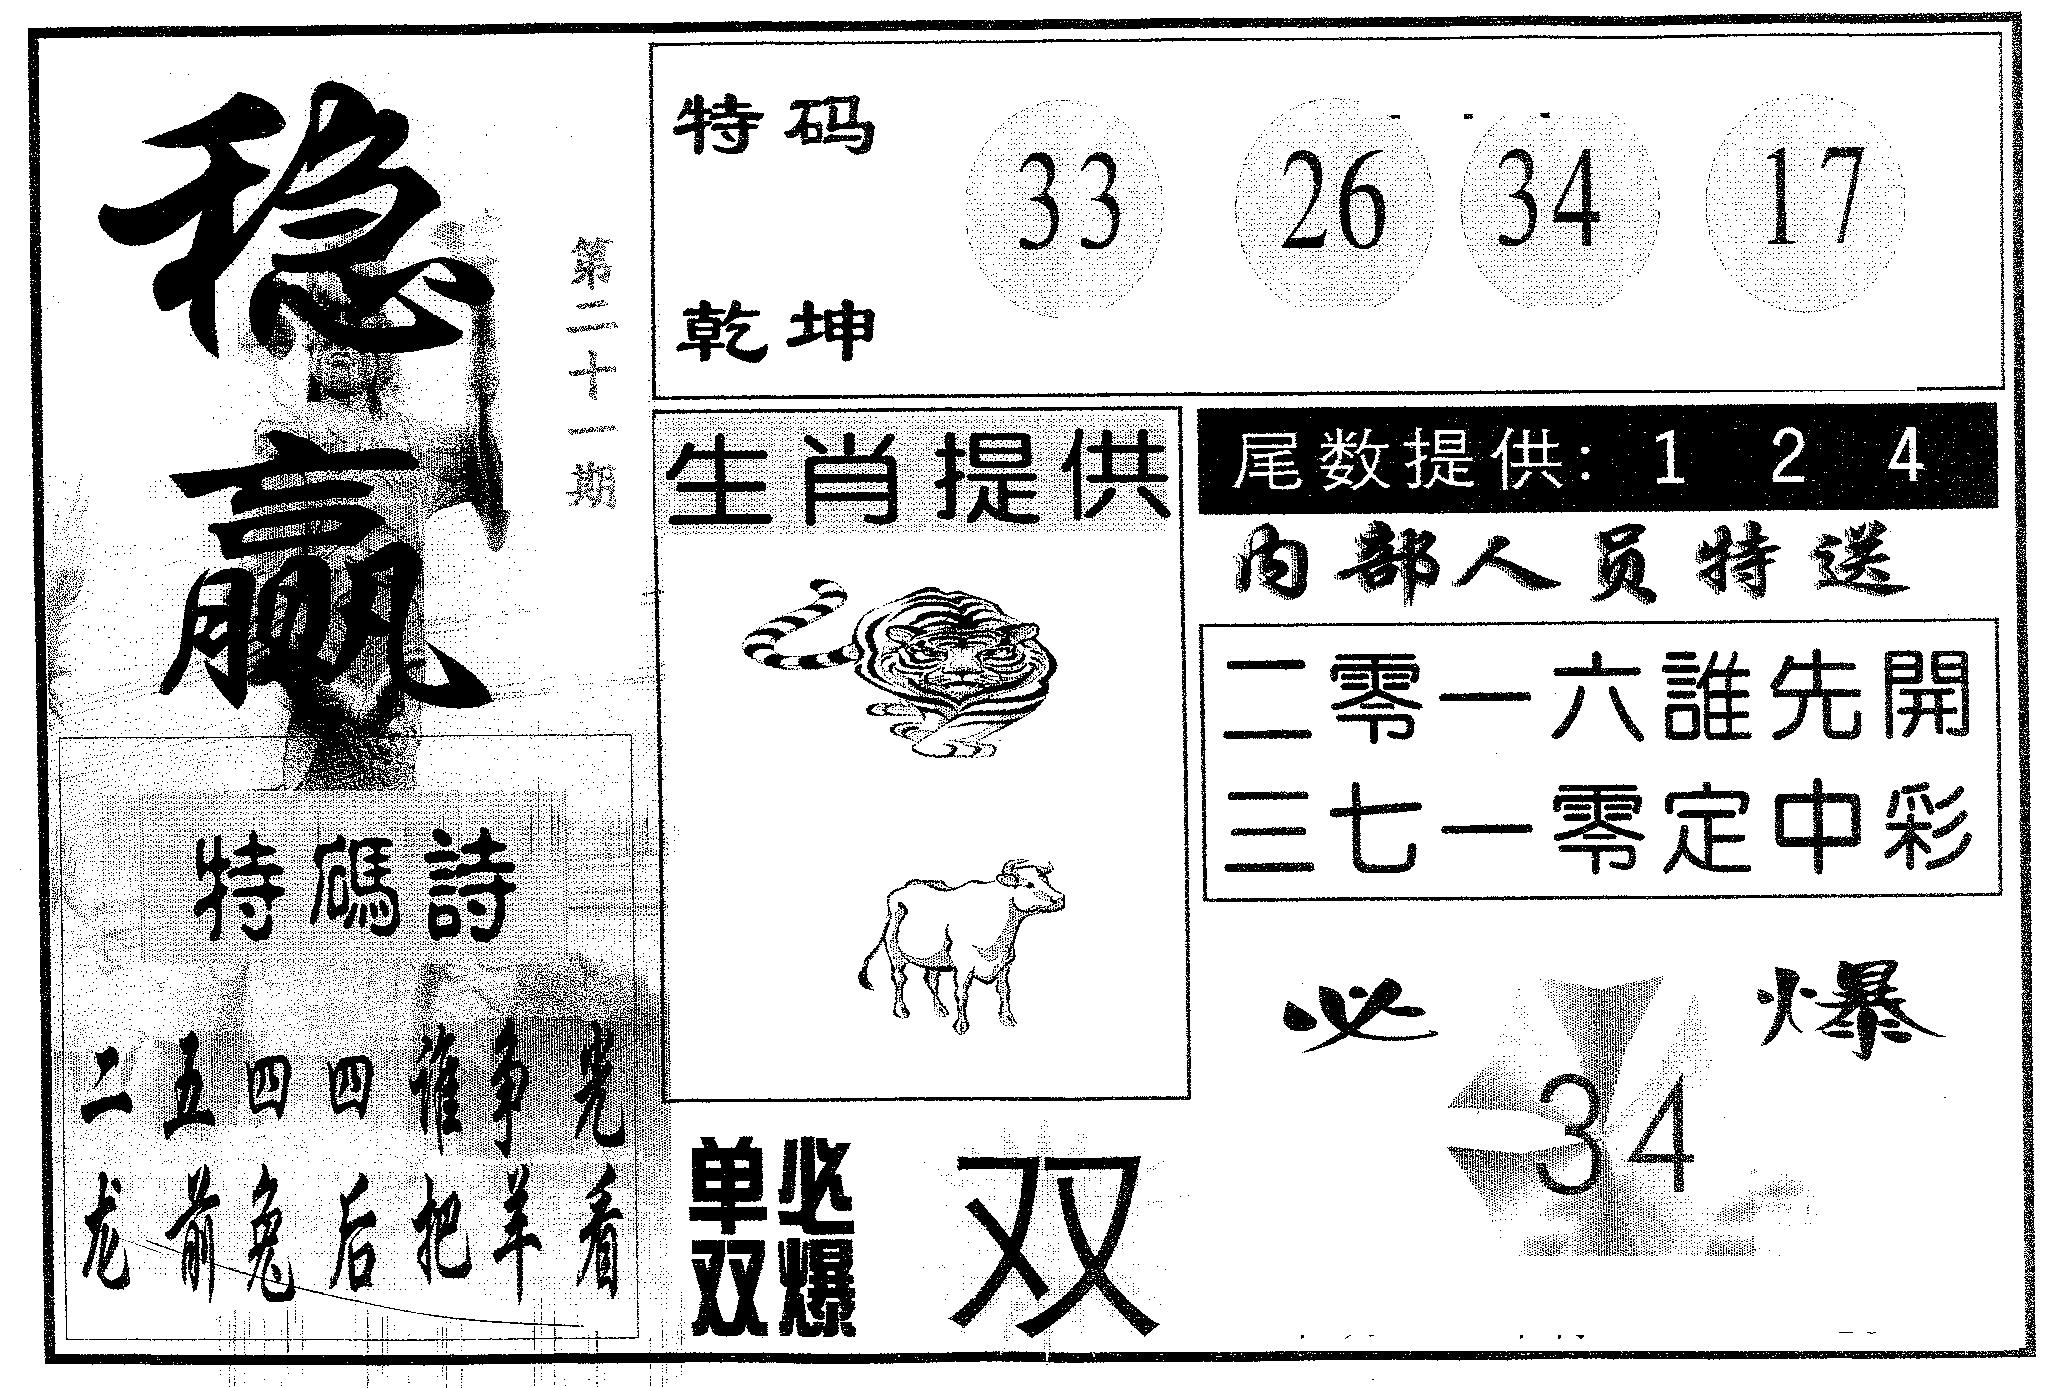 稳赢
第二十一期
特码诗
二五四四谁争光
龙前兔后把羊看
特码
乾坤
33 26 34 17
生肖提供
单双
必爆
双
尾数提供: 1 2 4
内部人员特送
二零一六誰先開
三七一零定中彩
必爆
34